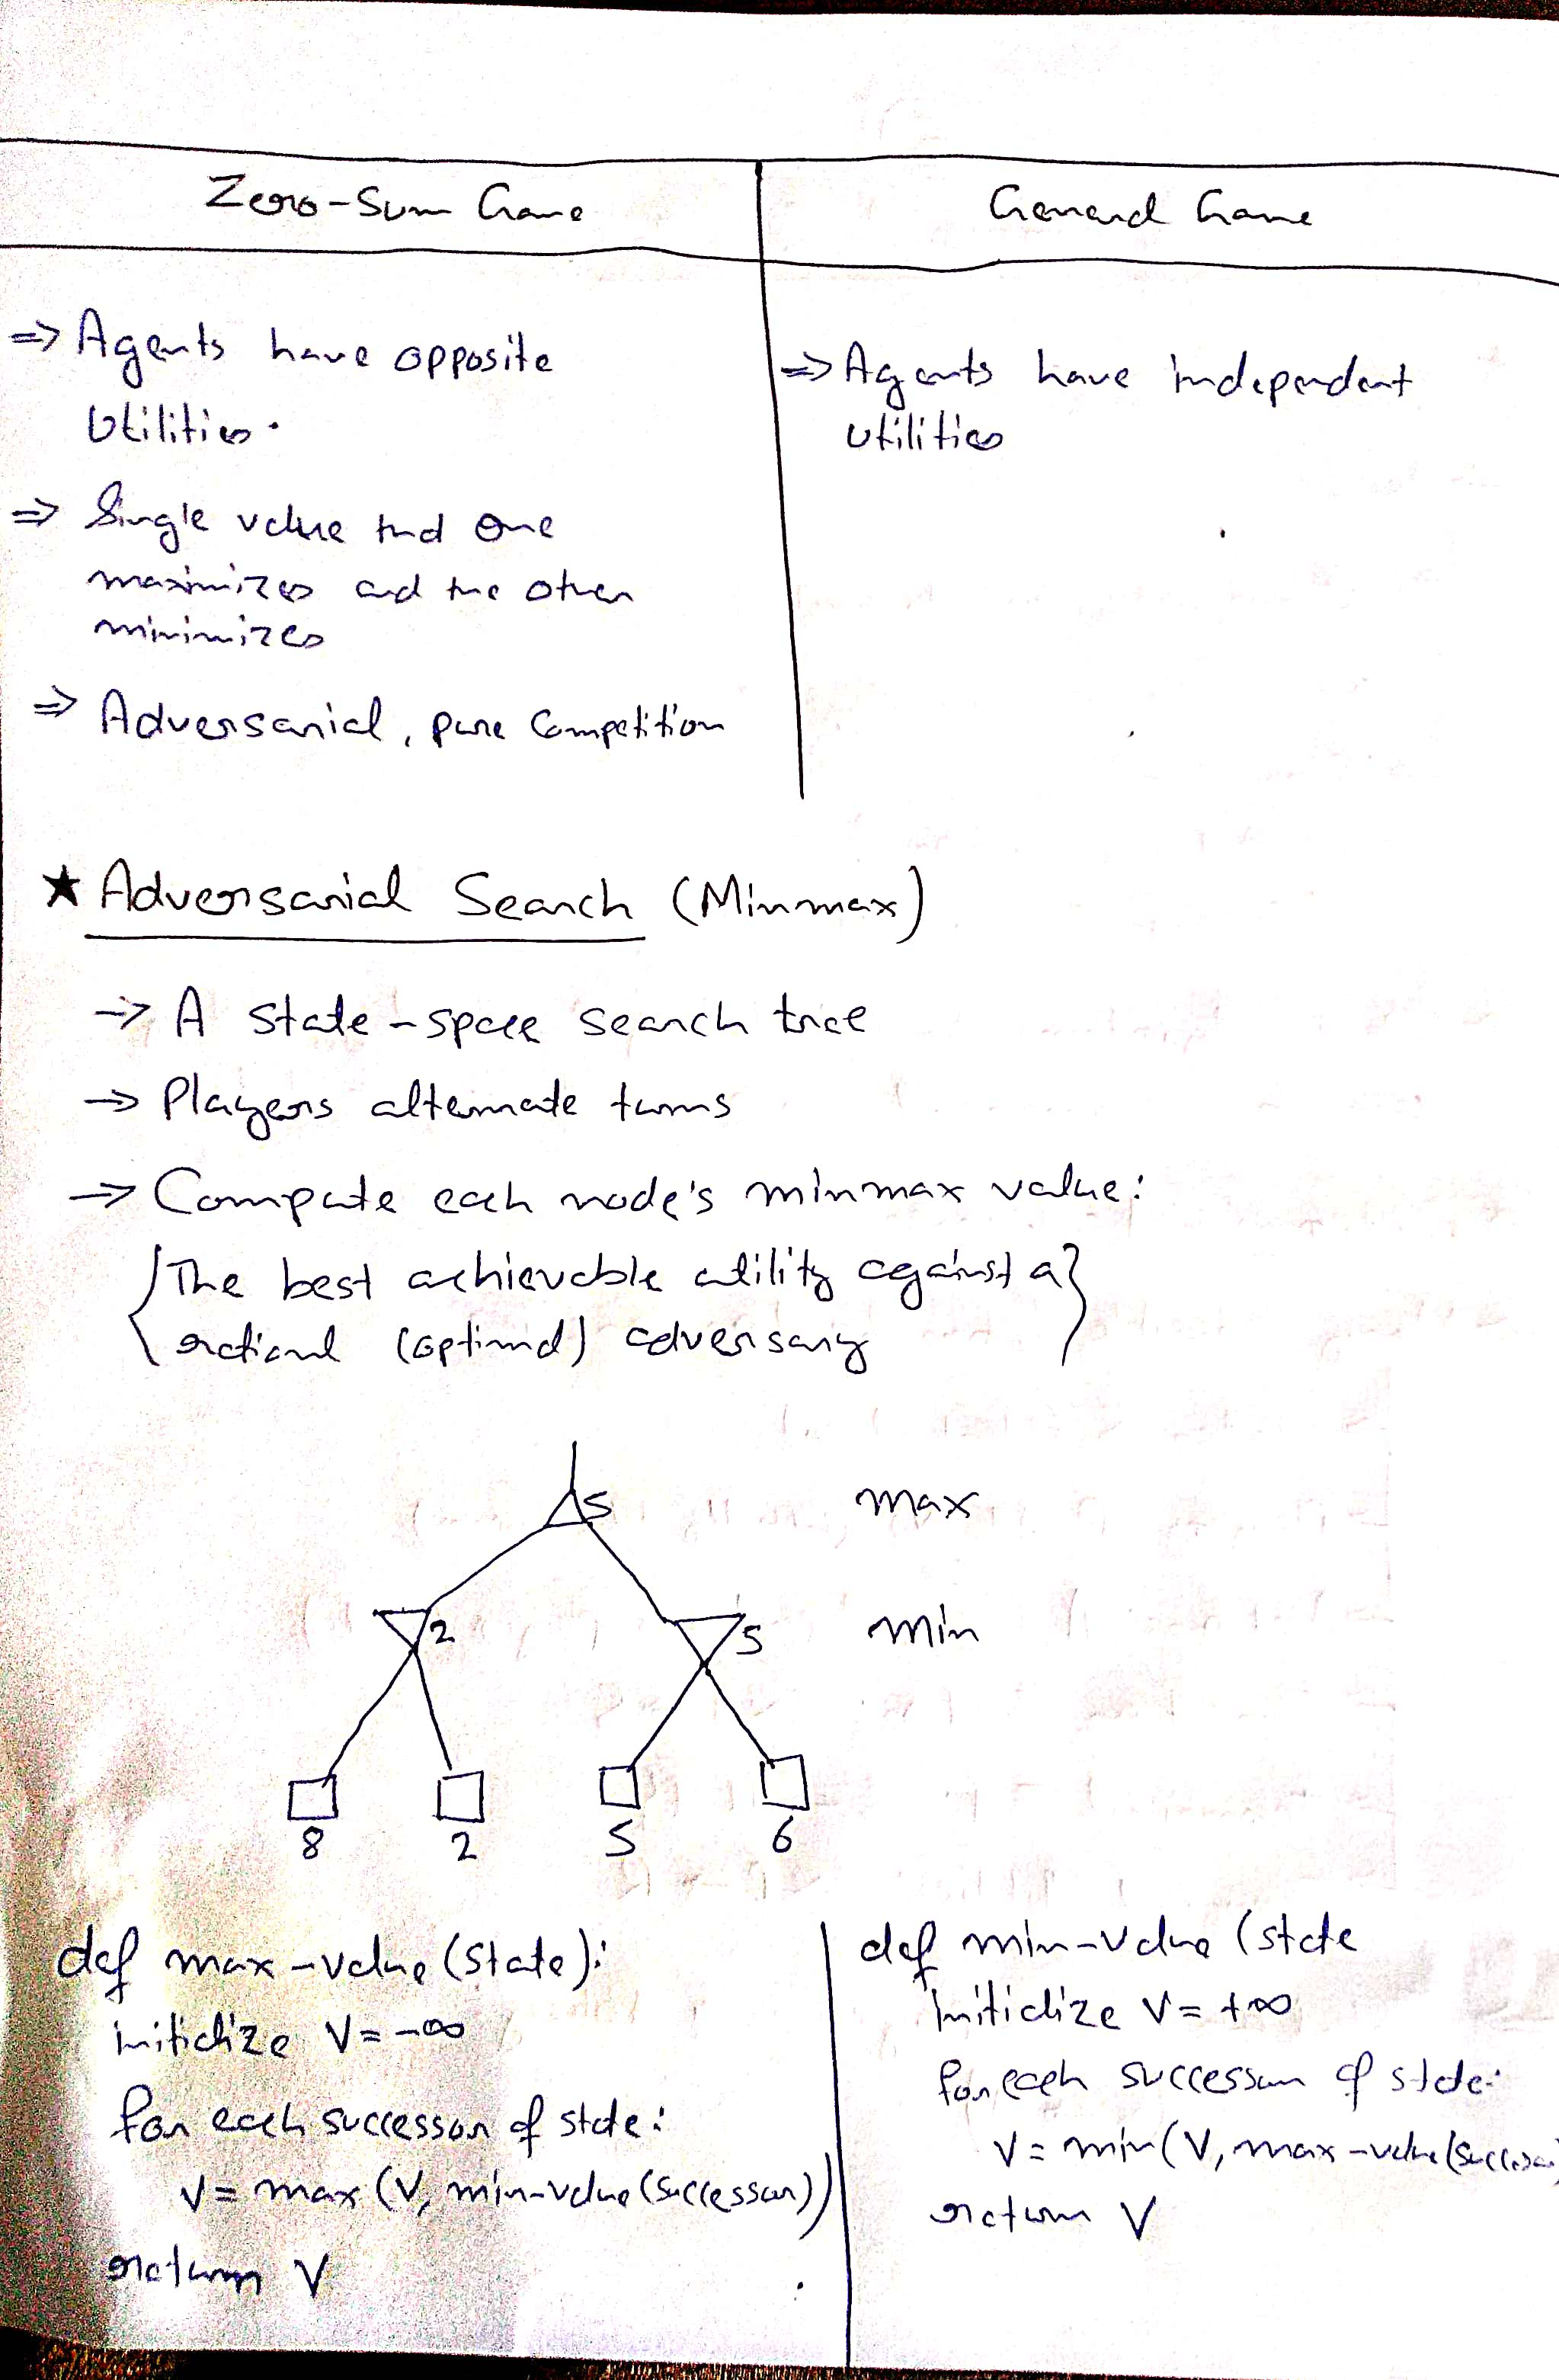 Zero-Sum Game
General Game
=> Agents have opposite
Utilities.
=> Single value that one
maximizes and the other
minimizes
=> Adversarial, pure Competition
=> Agents have independent
utilities
★ Adversarial Search (Minmax)
-> A state-space search tree
-> Players alternate turns
-> Compute each node's minmax value:
{The best achievable utility against a}
rational (optimal) adversary
5 max
2 5 min
8 2 5 6
def max-value (State):
initialize V = -∞
for each successor of state:
V = max (V, min-value (Successor))
return V
def min-value (state
Initialize V = +∞
for each successor of state:
V = min (V, max-value (Successor
return V